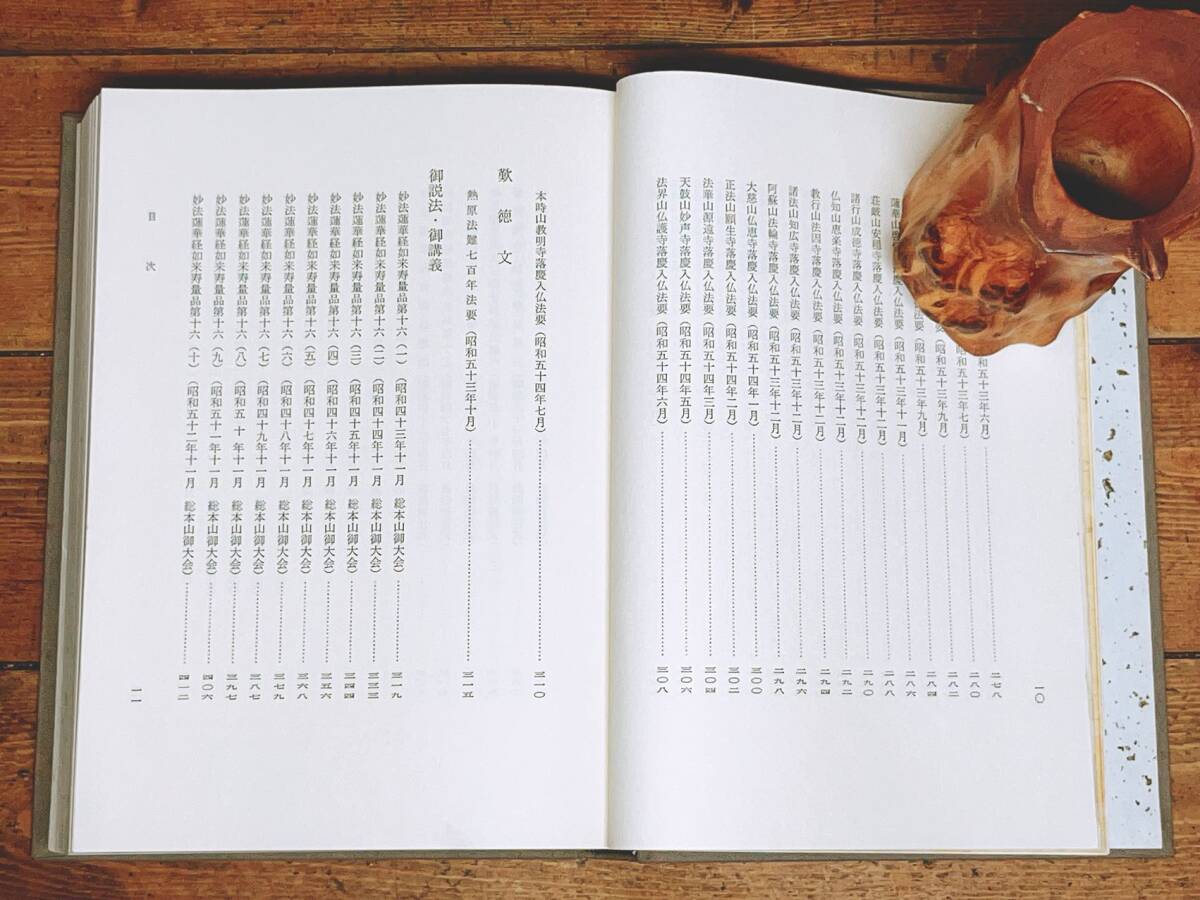 昭和五十三年六月)……二七八
五十三年七月)……二八〇
昭和五十三年九月)……二八二
(昭和五十三年九月)……二八四
蓮華山 (昭和五十三年十一月)……二八六
荘厳山安穏寺落慶入仏法要(昭和五十三年十一月)……二八八
諸行山成徳寺落慶入仏法要(昭和五十三年十一月)……二九〇
仏知山恵楽寺落慶入仏法要(昭和五十三年十一月)……二九二
教行山法因寺落慶入仏法要(昭和五十三年十二月)……二九四
諸法山知広寺落慶入仏法要(昭和五十三年十二月)……二九六
阿蘇山法輪寺落慶入仏法要(昭和五十三年十二月)……二九八
大慈山仏恵寺落慶入仏法要(昭和五十四年一月)……三〇〇
正法山願生寺落慶入仏法要(昭和五十四年二月)……三〇二
法華山源遠寺落慶入仏法要(昭和五十四年三月)……三〇四
天鼓山妙声寺落慶入仏法要(昭和五十四年五月)……三〇六
法界山仏護寺落慶入仏法要(昭和五十四年六月)……三〇八
一〇
本時山教明寺落慶入仏法要(昭和五十四年七月)……三一〇
歎徳文
熱原法難七百年法要(昭和五十三年十月)……三一五
御説法・御講義
妙法蓮華経如来寿量品第十六(一)(昭和四十三年十一月 総本山御大会)……三一九
妙法蓮華経如来寿量品第十六(二)(昭和四十四年十一月 総本山御大会)……三三三
妙法蓮華経如来寿量品第十六(三)(昭和四十五年十一月 総本山御大会)……三四四
妙法蓮華経如来寿量品第十六(四)(昭和四十六年十一月 総本山御大会)……三五六
妙法蓮華経如来寿量品第十六(五)(昭和四十七年十一月 総本山御大会)……三六八
妙法蓮華経如来寿量品第十六(六)(昭和四十八年十一月 総本山御大会)……三七九
妙法蓮華経如来寿量品第十六(七)(昭和四十九年十一月 総本山御大会)……三八七
妙法蓮華経如来寿量品第十六(八)(昭和五十年十一月 総本山御大会)……三九七
妙法蓮華経如来寿量品第十六(九)(昭和五十一年十一月 総本山御大会)……四〇六
妙法蓮華経如来寿量品第十六(十)(昭和五十二年十一月 総本山御大会)……四一二
目次
一一